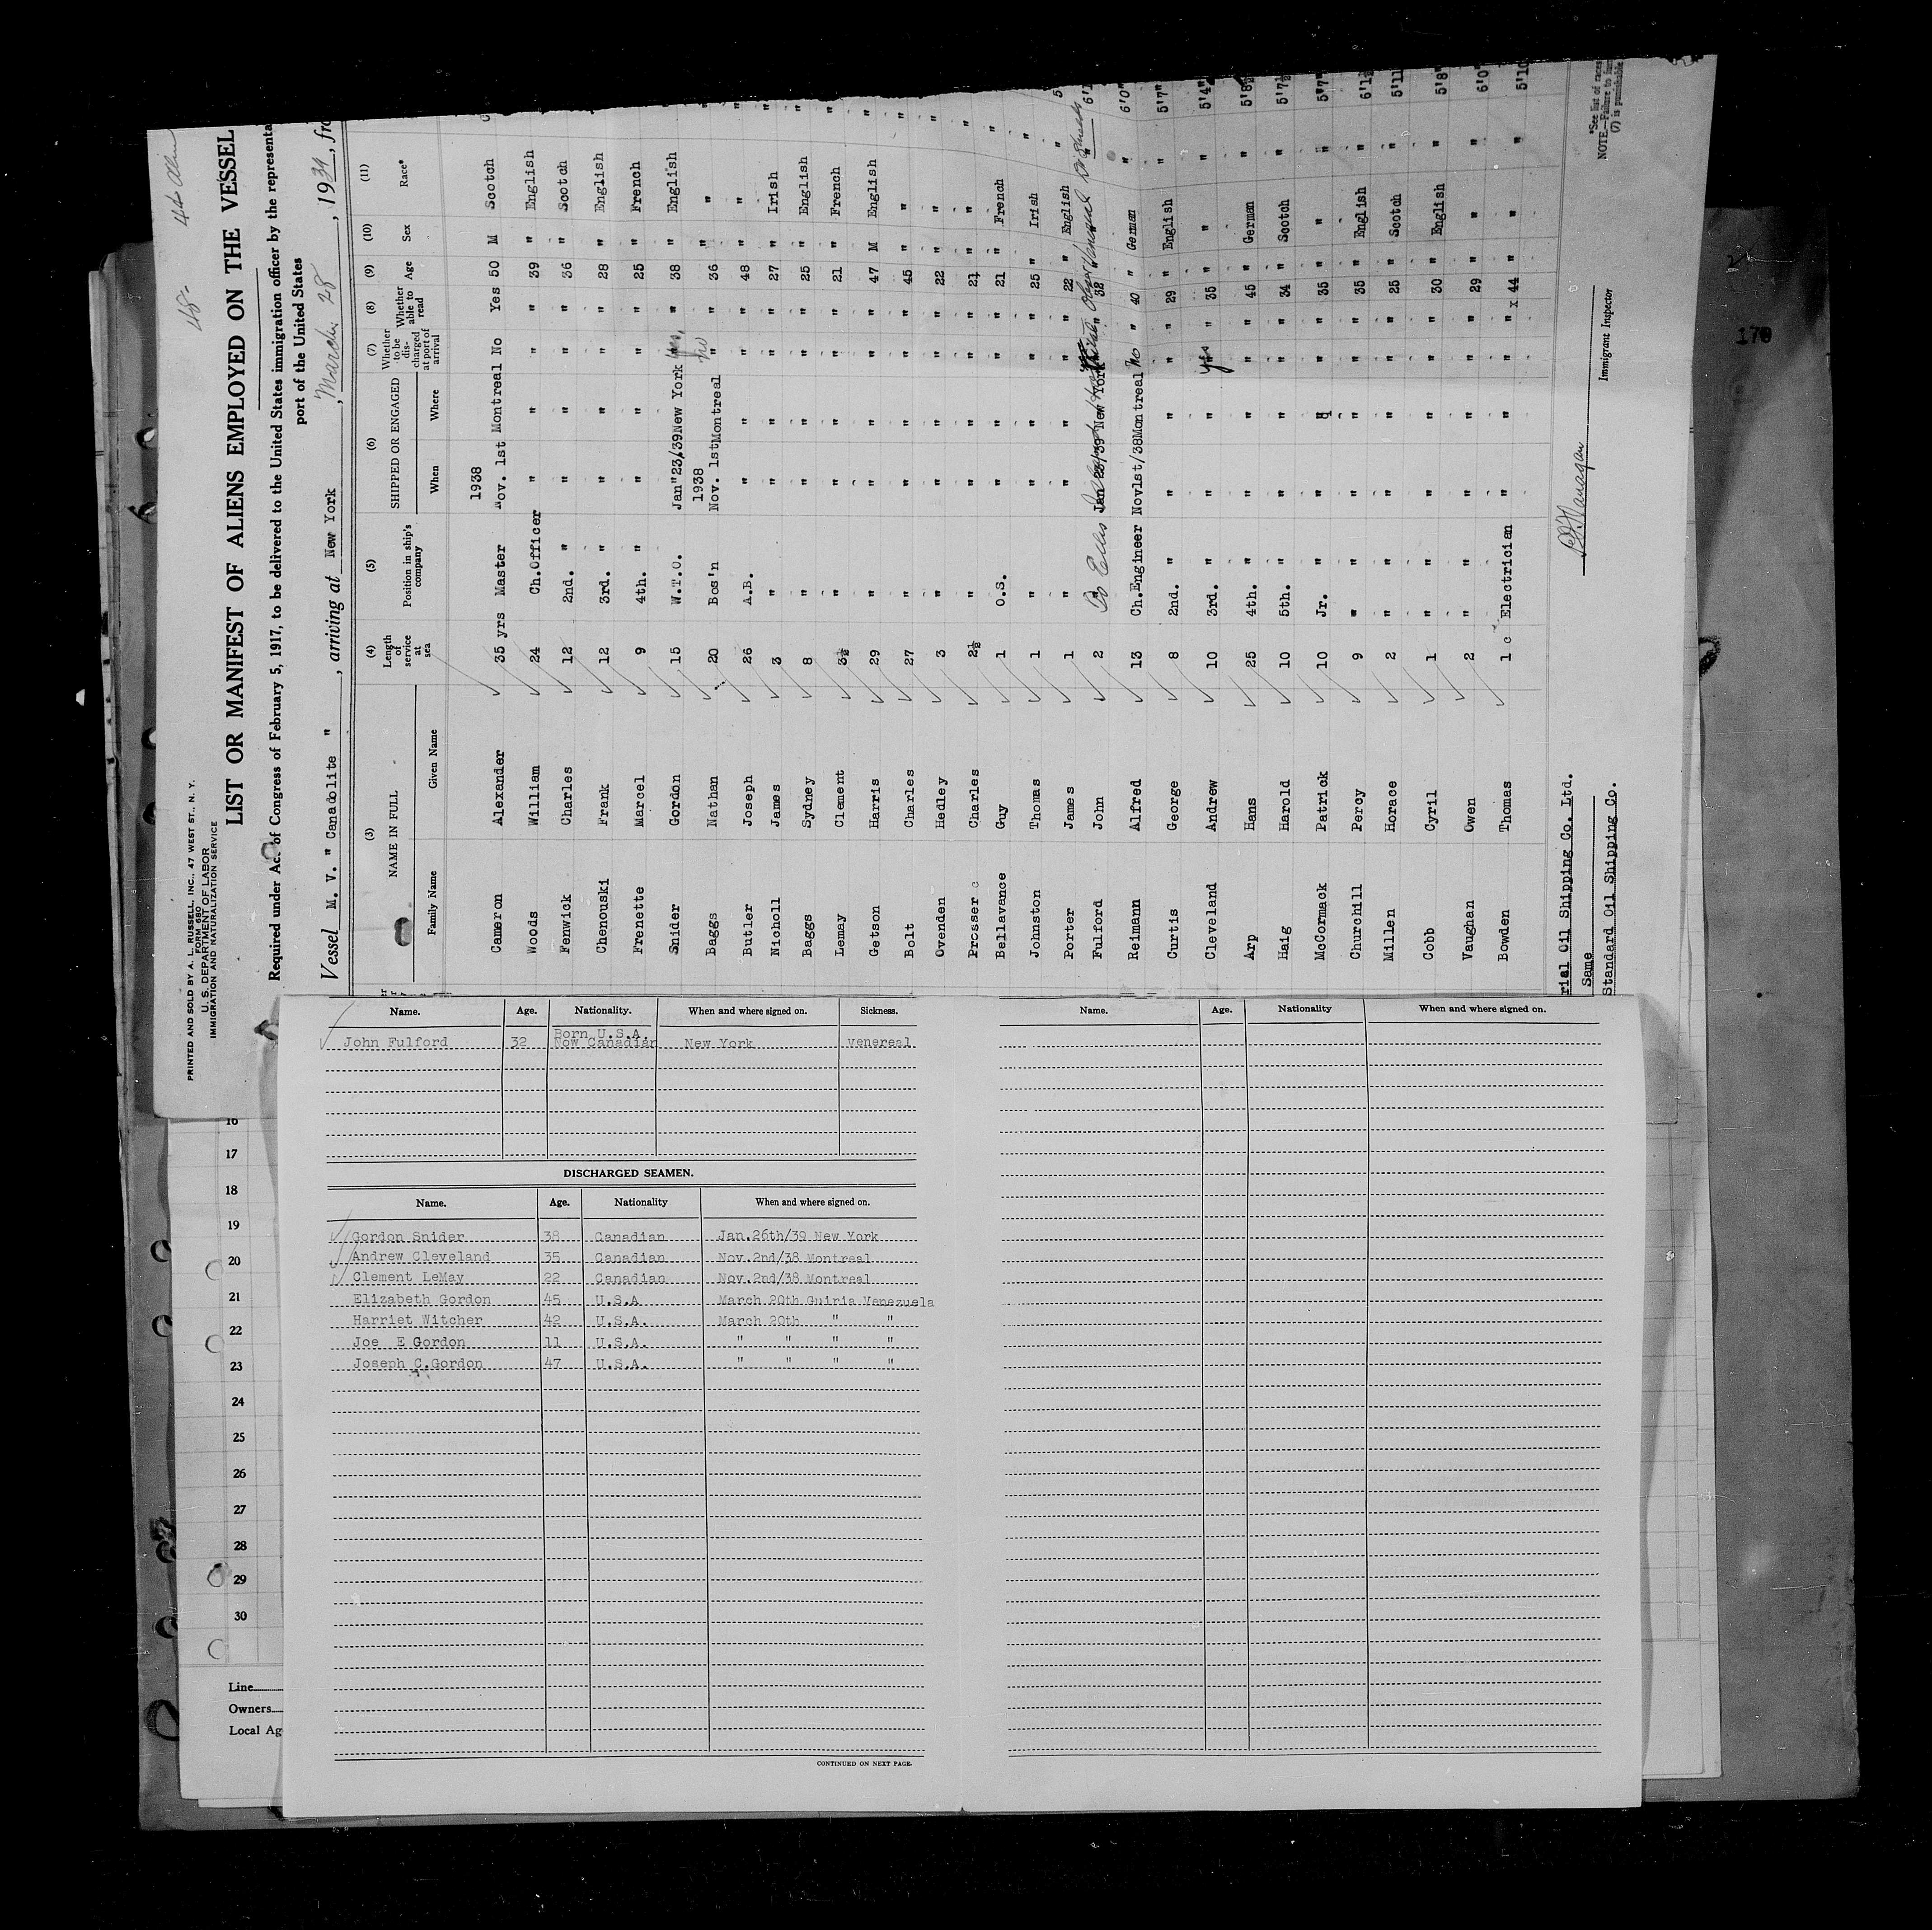 PRINTED AND SOLD BY A. L. RUSSELL, INC., 47 WEST ST., N. Y.
FORM 680
U. S. DEPARTMENT OF LABOR
IMMIGRATION AND NATURALIZATION SERVICE
LIST OR MANIFEST OF ALIENS EMPLOYED ON THE VESSEL
Required under Act of Congress of February 5, 1917, to be delivered to the United States immigration officer by the representa
port of the United States
Vessel M. V. " Canadolite ", arriving at New York, March 28, 1939, fro
(3) (4) (5) (6) (7) (8) (9) (10) (11)
NAME IN FULL Length of service at sea Position in ship's company SHIPPED OR ENGAGED Whether to be discharged at port of arrival Whether able to read Age Sex Race*
Family Name Given Name When Where
1938
Cameron Alexander 35 yrs Master Nov. 1st Montreal No Yes 50 M Scotch
Woods William 24 Ch.Officer " " " " 39 " English
Fenwick Charles 12 2nd. " " " " " 36 " Scotch
Chenouski Frank 12 3rd. " " " " " 28 " English
Frenette Marcel 9 4th. " " " " " 25 " French
Snider Gordon 15 W.T.O. Jan"23/39New York Yes " 38 " English
1938 No
Baggs Nathan 20 Bos'n Nov. 1stMontreal " " 36 " "
Butler Joseph 26 A.B. " " " " 48 " "
Nicholl James 3 " " " " " 27 " Irish
Baggs Sydney 8 " " " " " 25 " English
Lemay Clement 3½ " " " " " 21 " French
Getson Harris 29 " " " " " 47 M English
Bolt Charles 27 " " " " " 45 " "
Ovenden Hedley 3 " " " " " 22 " "
Prosser c Charles 2½ " " " " " 21 " "
Bellavance Guy 1 O.S. " " " " 21 " French
Johnston Thomas 1 " " " " " 25 " Irish
Porter James 1 " " " " " 22 " English
Fulford John 2 " Jan 23/39 New York " 32 " "
Reimann Alfred 13 Ch.Engineer Nov1st/38Montreal No " 40 " German 6'0"
Curtis George 8 2nd. " " " " " 29 " English " 5'7"
Cleveland Andrew 10 3rd. " " " yes " 35 " " " 5'4"
Arp Hans 25 4th. " " " " " 45 " German " 5'8½
Haig Harold 10 5th. " " " " " 34 " Scotch " 5'7½
McCormack Patrick 10 Jr. " " " " " 35 " " " 5'7"
Churchill Percy 9 " " " " " 35 " English " 6'1½
Millen Horace 2 " " " " " 25 " Scotch " 5'11
Cobb Cyril 1 " " " " " 30 " English " 5'8"
Vaughan Owen 2 " " " " " 29 " " " 6'0"
Bowden Thomas 1 c Electrician " " " " x 44 " " " 5'10
rial Oil Shipping Co. Ltd.
Same
Standard Oil Shipping Co.
Immigrant Inspector
*See list of races
NOTE.—Failure to
(7) is punishable
170
Name. Age. Nationality. When and where signed on. Sickness.
Born U.S.A.
John Fulford 32 Now Canadian New York venereal
DISCHARGED SEAMEN.
Name. Age. Nationality When and where signed on.
Gordon Snider 38 Canadian Jan.26th/39 New York
Andrew Cleveland 35 Canadian Nov.2nd/38 Montreal
Clement LeMay 22 Canadian Nov.2nd/38 Montreal
Elizabeth Gordon 45 U.S.A March 20th Guiria Venezuela
Harriet Witcher 42 U.S.A. March 20th " "
Joe E Gordon 11 U.S.A. " " " "
Joseph C.Gordon 47 U.S.A. " " " "
CONTINUED ON NEXT PAGE.
Name. Age. Nationality When and where signed on.
16
17
18
19
20
21
22
23
24
25
26
27
28
29
30
Line
Owners
Local Ag